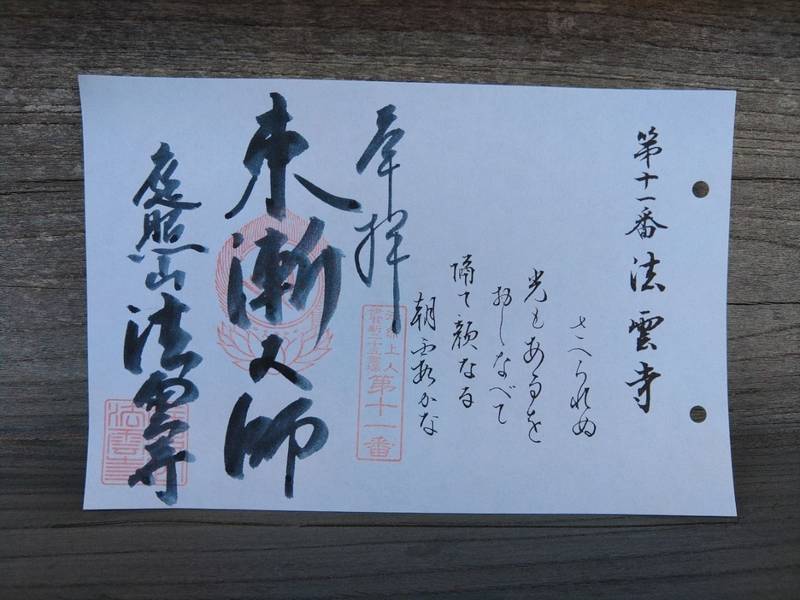 第十一番 法雲寺
さへられぬ
光もあるを
おしなべて
隔て顔なる
朝霞かな
奉拝
法然上人
第十一番
東漸大師
庭照山 法雲寺